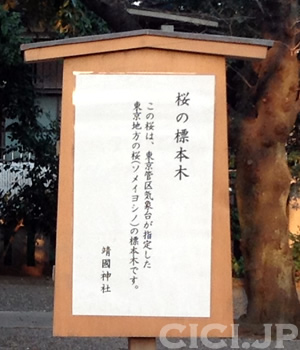 桜の標本木
この桜は、東京管区気象台が指定した
東京地方の桜(ソメイヨシノ)の標本木です。
靖國神社
CICI.JP